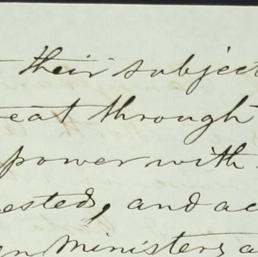 their subject
eat through
power with
ested, and ac
en Ministers a